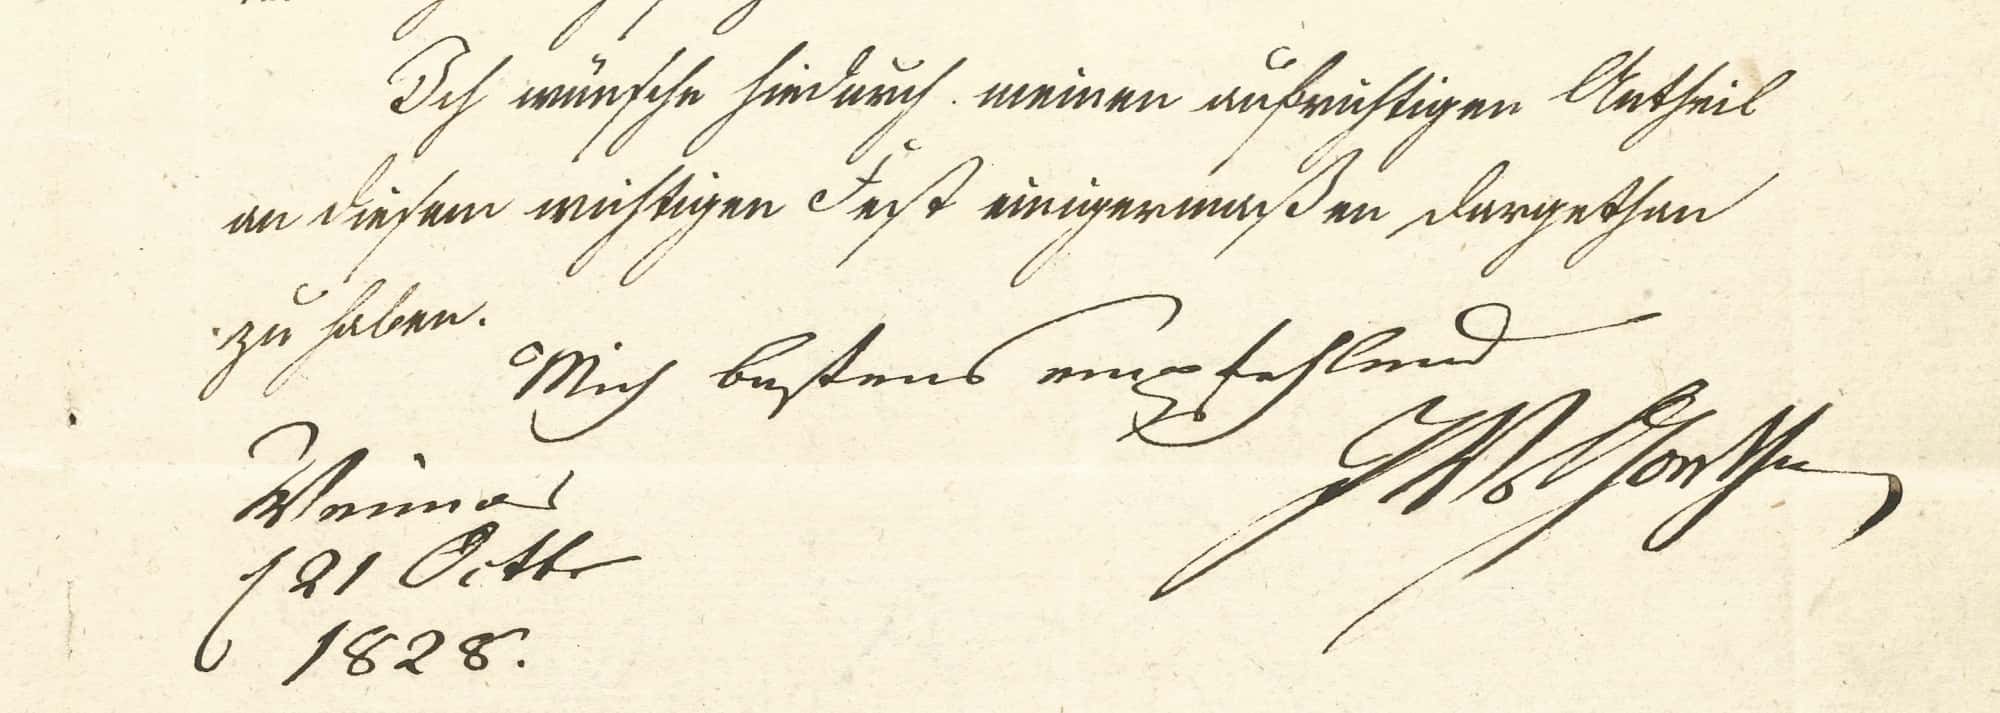 Ich wünsche hiedurch meinen aufrichtigen Antheil
an diesem wichtigen Fest einigermaßen dargethan
zu haben.
Mich bestens empfehlend
JWvGoethe
Weimar
d 21 Octbr
1828.